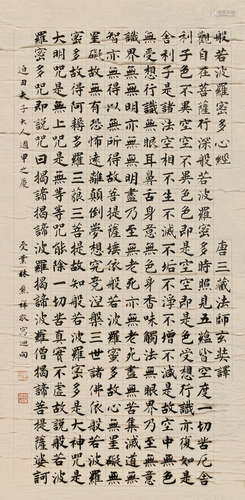 般若波羅蜜多心經　唐三藏法師玄奘譯
觀自在菩薩行深般若波羅蜜多時照見五蘊皆空度一切苦厄舍
利子色不異空空不異色色即是空空即是色受想行識亦復如是
舍利子是諸法空相不生不滅不垢不淨不增不減是故空中無色
無受想行識無眼耳鼻舌身意無色聲香味觸法無眼界乃至無意
識界無無明亦無無明盡乃至無老死亦無老死盡無苦集滅道無
智亦無得以無所得故菩提薩埵依般若波羅蜜多故心無罣礙無
罣礙故無有恐怖遠離顛倒夢想究竟涅槃三世諸佛依般若波羅
蜜多故得阿耨多羅三藐三菩提故知般若波羅蜜多是大神咒是
大明咒是無上咒是無等等咒能除一切苦真實不虛故說般若波
羅蜜多咒即說咒曰揭諦揭諦波羅揭諦波羅僧揭諦菩提薩婆訶
夫子大人週甲之慶　受業林熊祥敬寫迴向